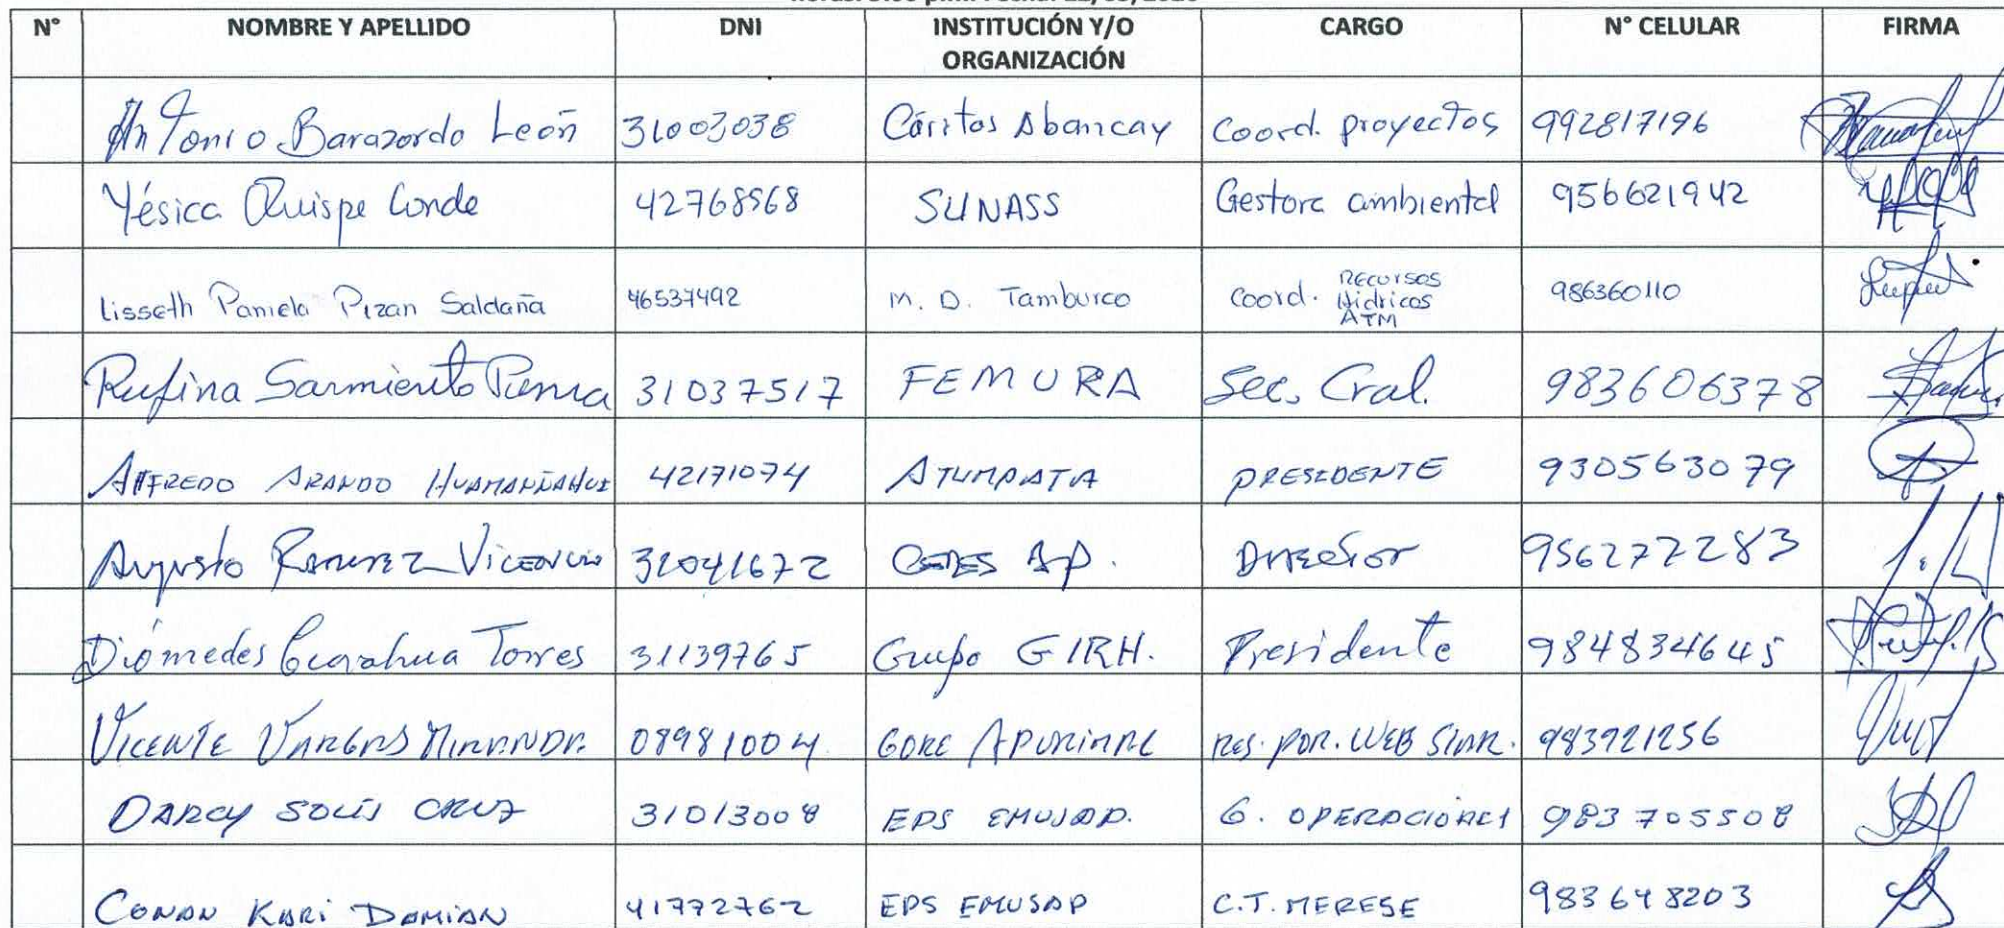 N° NOMBRE Y APELLIDO DNI INSTITUCIÓN Y/O ORGANIZACIÓN CARGO N° CELULAR FIRMA
Antonio Barazordo León 31002038 Cáritas Abancay Coord. proyectos 992817196
Yésica Quispe Conde 42768568 SUNASS Gestora ambiental 956621942
Lisseth Pamela Pizan Saldaña 46537492 M. D. Tamburco Coord. Recursos Hidricos ATM 986360110
Rufina Sarmiento 31037517 FEMURA Sec. Gral. 983606378
ALFREDO ARANDO HUAMAÑAHUI 42171074 ATUMPATA PRESIDENTE 930563079
Augusto Ramirez Vicencio 31041672 CEDES AP. Director 956277283
Diómedes Torres 31139765 Grupo GIRH. Presidente 984834645
VICENTE VARGAS MIRANDA 08981004 GORE APURIMAC RES. POR. WEB SIAR. 983721256
DARCY SOLIS CRUZ 31013008 EPS EMUSAP. G. OPERACIONES 983705508
CONAN KARI DAMIAN 41772762 EPS EMUSAP C.T. MERESE 983648203